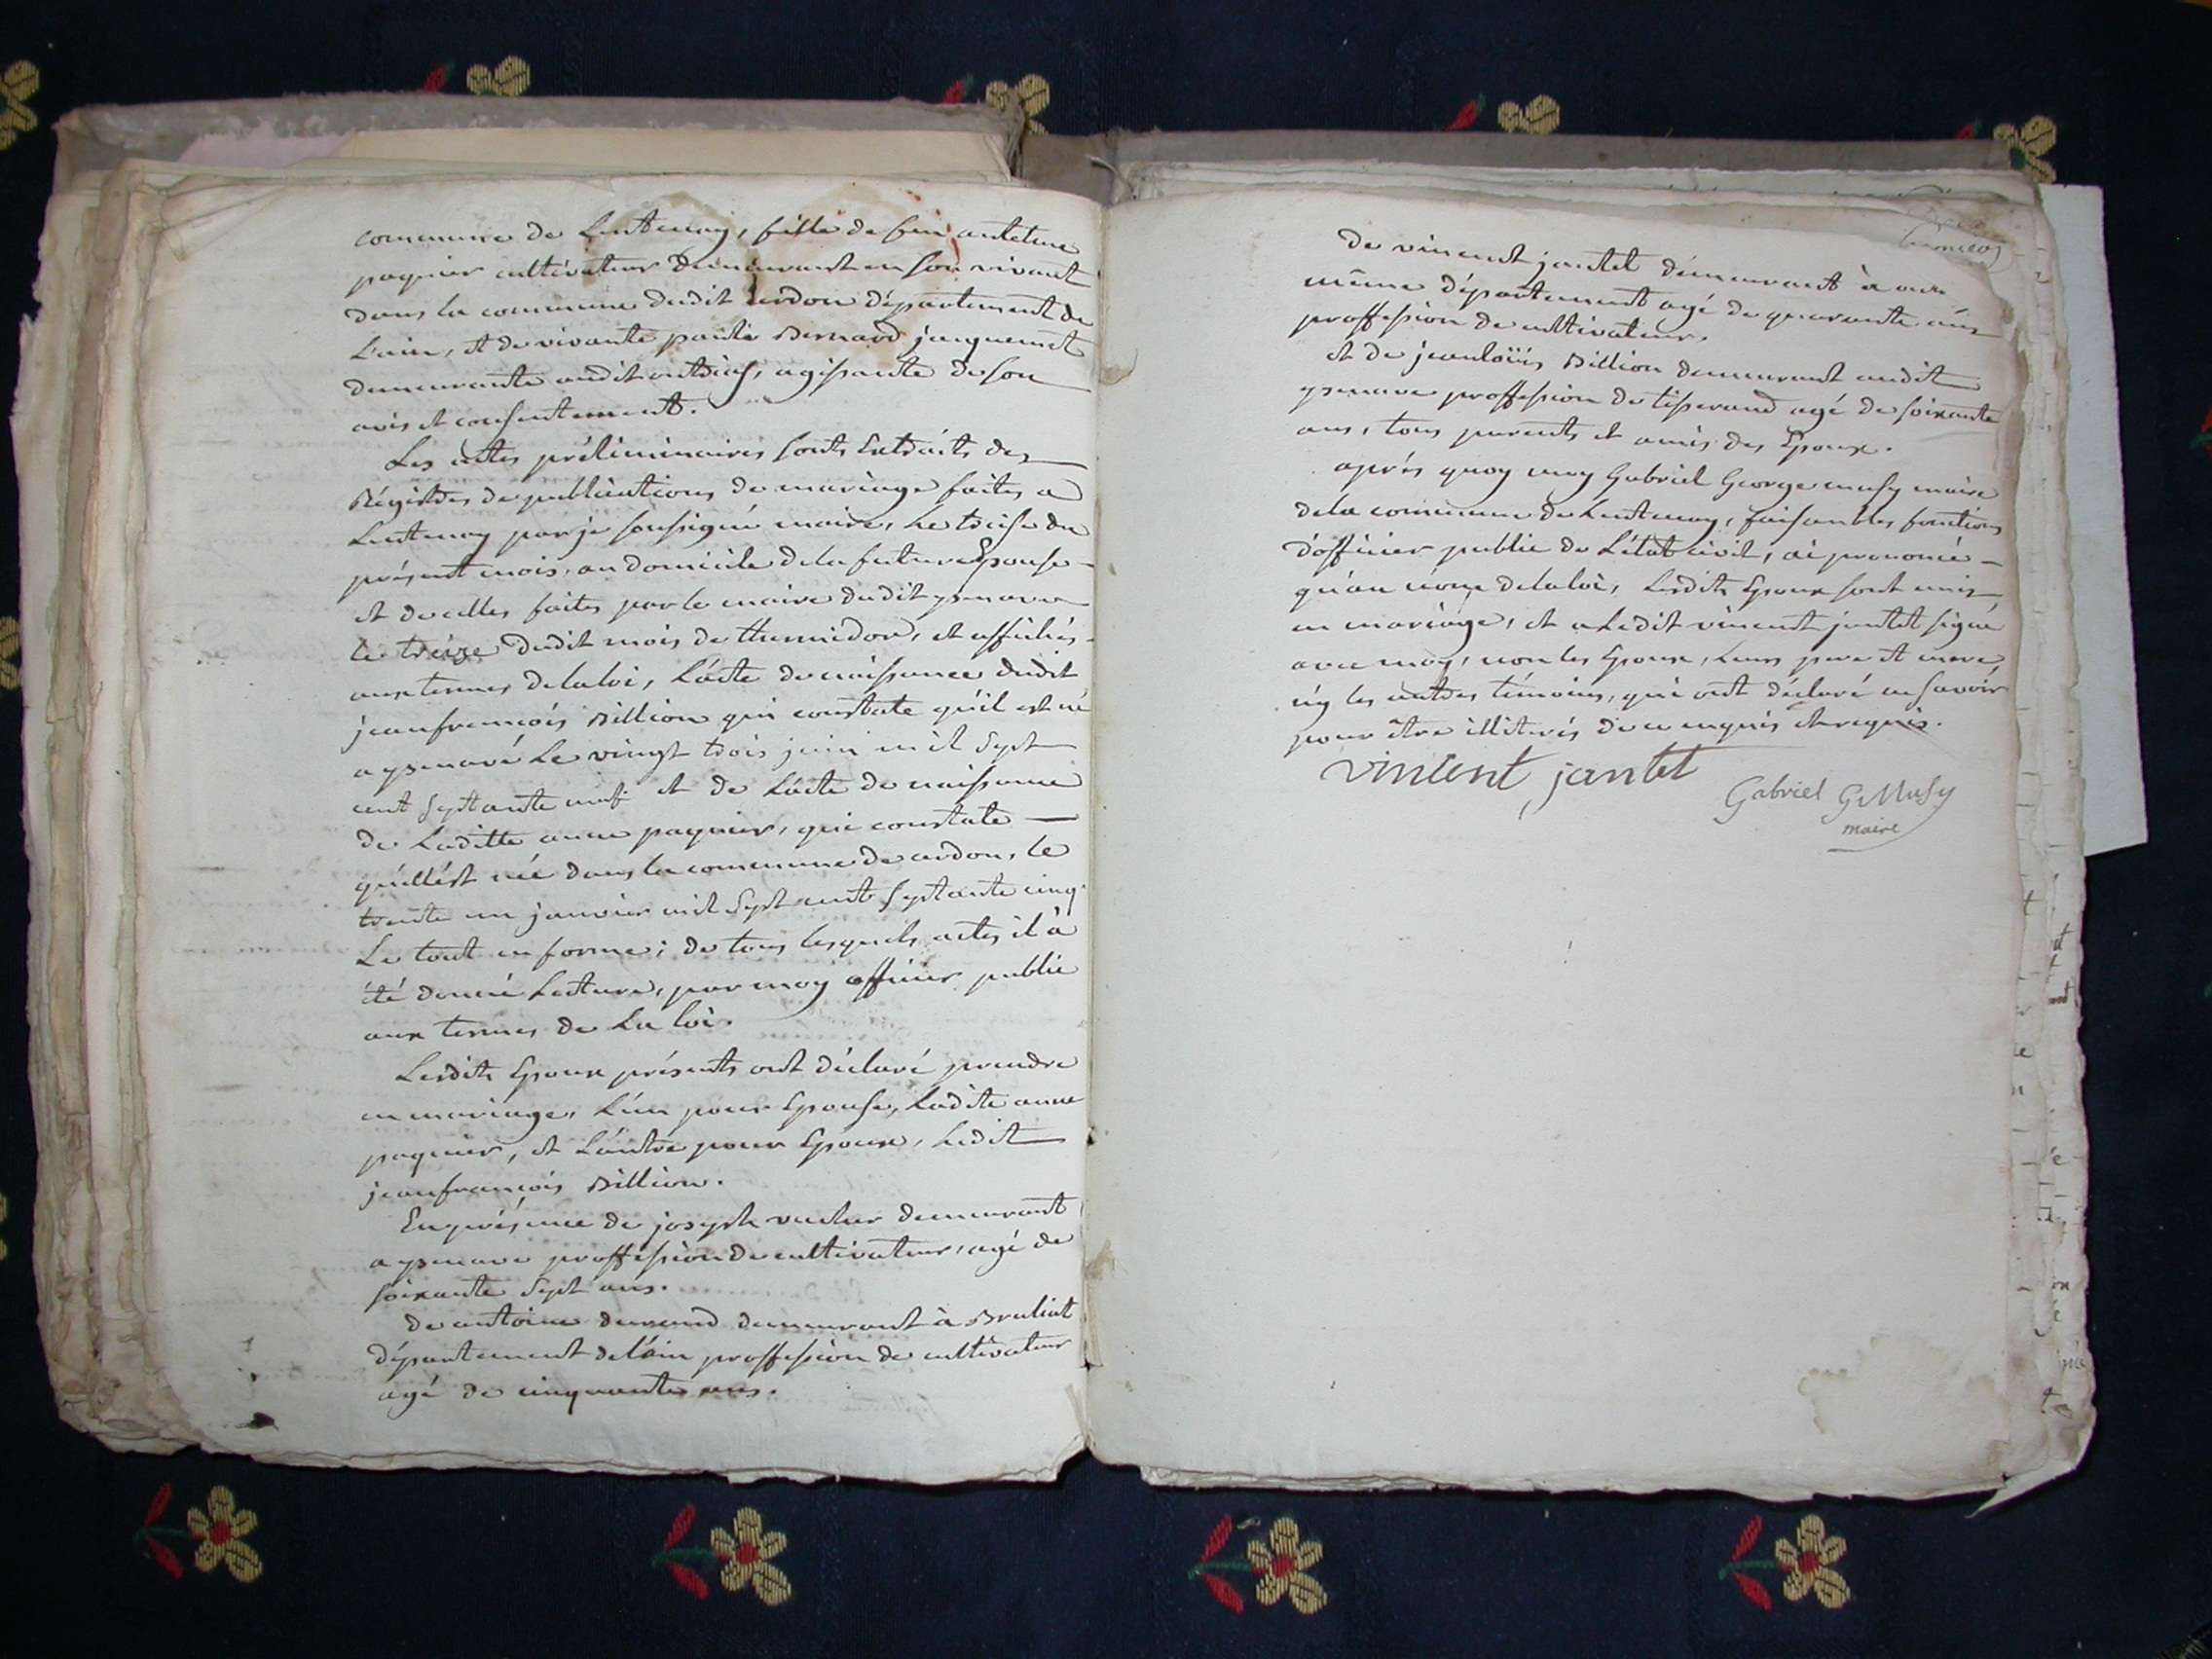 commune de Lentenay, fille de feu antelme
paquier cultivateur demeurant en son vivant
dans la commune dudit ardon département de
L'ain, et de vivante Bernard jacquemet
demeurante audit outriaf, agissante de son
avis et consentement.
Les actes préliminaires sonts Extraits des
Régistres de publications de mariage faites a
Lentenay par je soussigné maire, Le treise du
présent mois, au domicile de la future Epouse
et de celles faites par le maire dudit ysenave
le treize dudit mois de thermidor, et affichés
aux termes de la loi, L'acte de naissance dudit
jeanfrancois Billion qui constate qu'il est né
a ysenave Le vingt trois juin mil Sept
cent Septante neuf et de L'acte de naissance
de Laditte anne paquier, qui constate
qu'ellést née dans la commune de ardon, le
trente un janvier mil Sept cent Septante cinq
Le tout en forme; de tous lesquels actes il à
été donné Lecture, par moy officier public
aux termes de La loi.
Lesdits Epoux présents ont déclaré prendre
en mariage, L'un pour Epouse, Ladite anne
paquier, et L'autre pour Epoux, Ledit
jeanfrancois Billion.
En présence de joseph vucher demeurant
a ysenave proffession de cultivateur, agé de
soixante Sept ans.
de antoine durand demeurant à Bruliat
département de l'ain proffession de cultivateur
agé de cinquante ans.
de vincent jantet demeurant à
même département agé de quarante ans
proffession de cultivateur.
et de jeanloüis Billion demeurant audit
ysenave proffession de tisserand agé de soixante
ans, tous parents et amis des Epoux.
aprés quoy moy Gabriel George musy maire
de la commune de Lentenay, faisant les fonctions
d'officier public de L'état civil, ai prononcé
qu'au nom de la loi, Lesdits Epoux sont unis
en mariage, et a Ledit vincent jantet signé
avec moy, non les Epoux, Leurs pere et mere,
ny les autres témoins, qui ont déclaré ne savoir
pour être illiterés de ce enquis et requis.
vincent jantet
Gabriel G Musy
maire